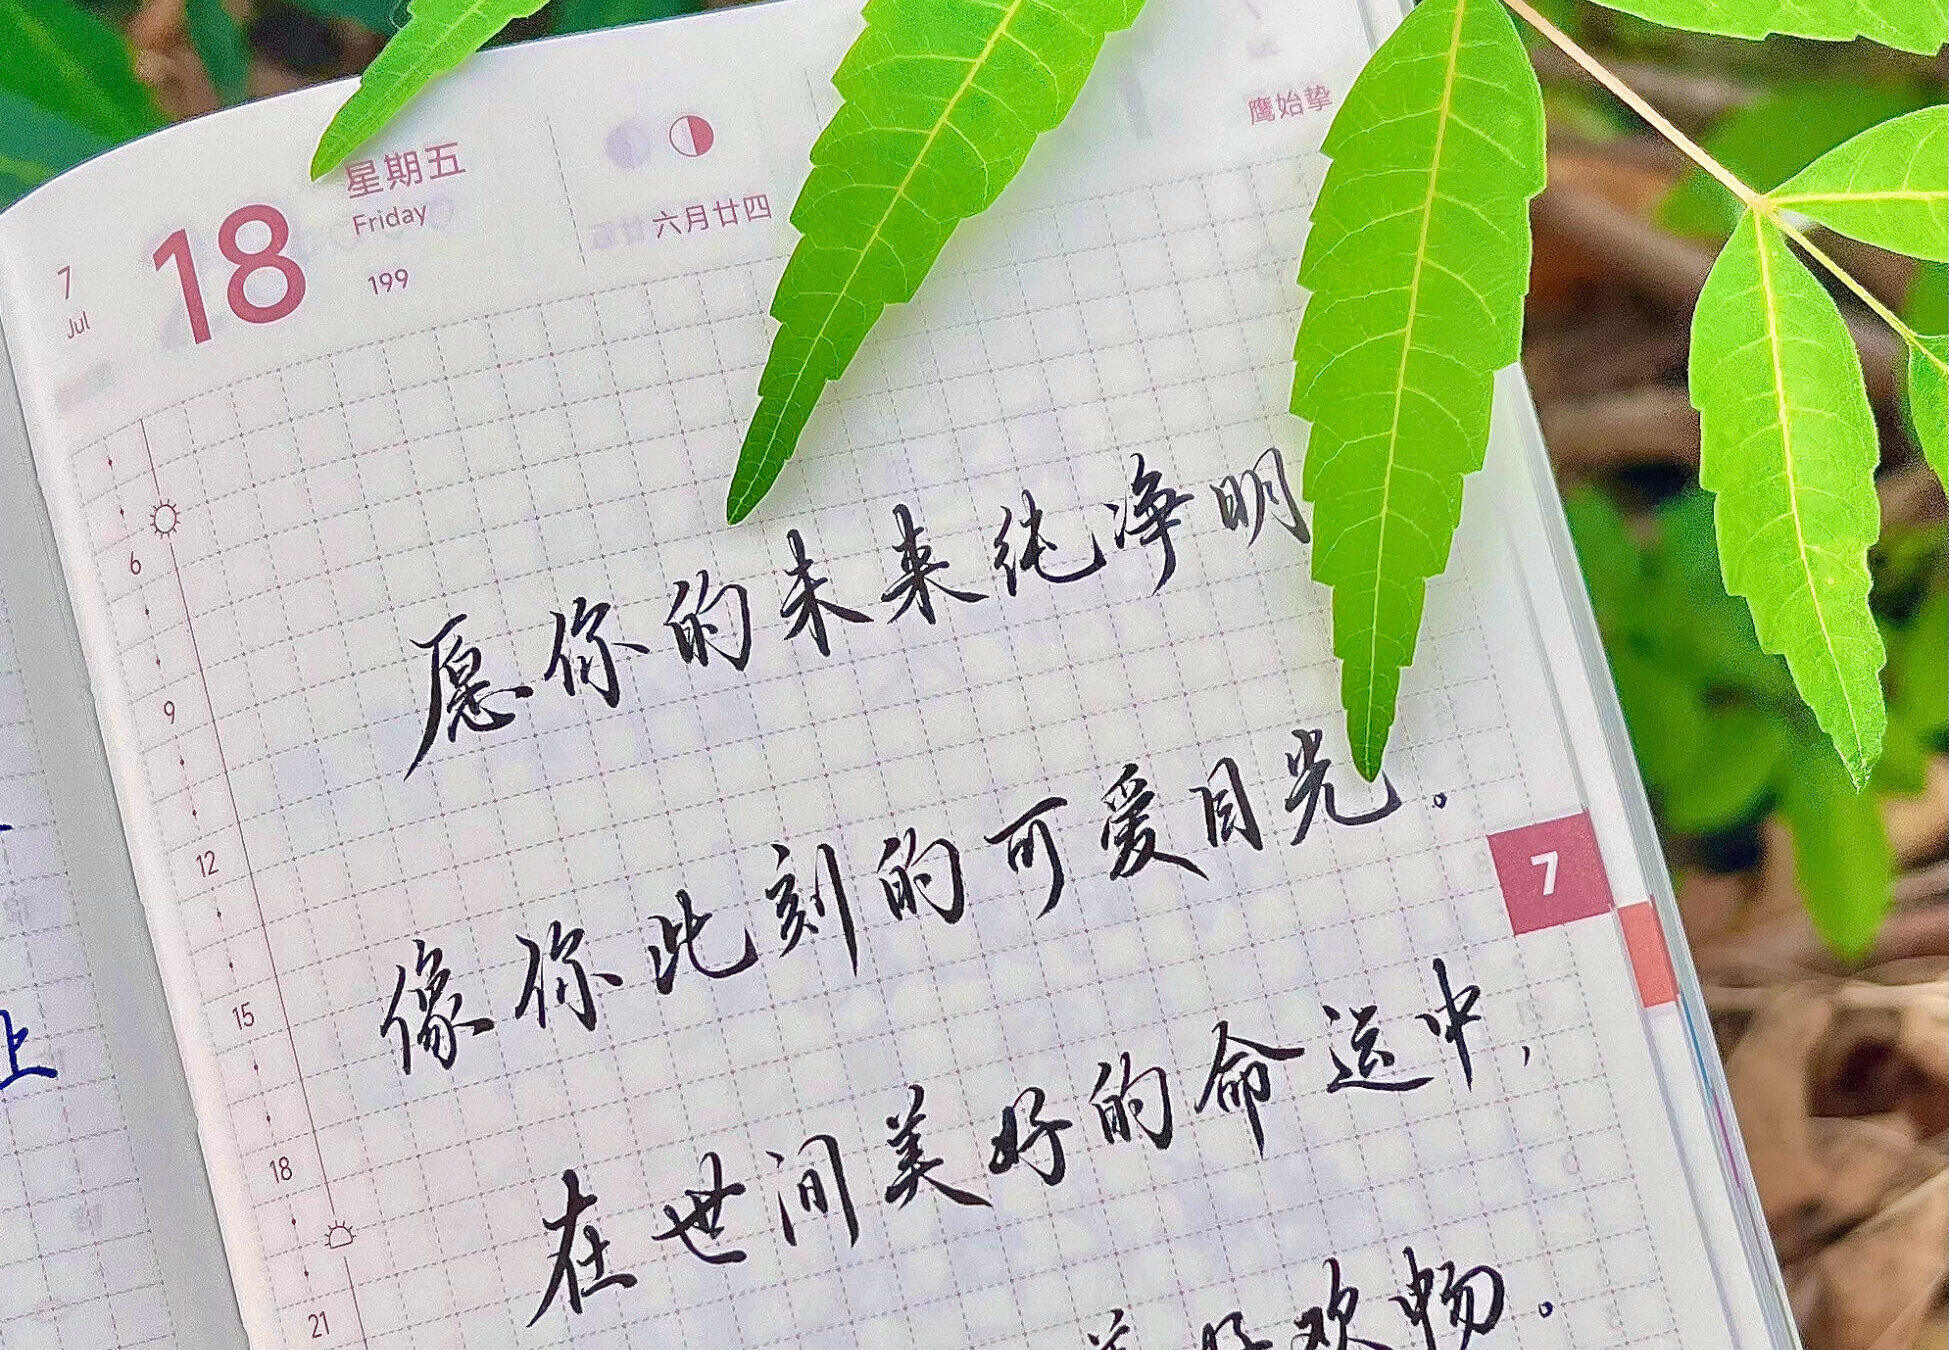 星期五
18
Friday
7
Jul
199
六月廿四
鹰始挚
6
9
12
15
18
21
愿你的未来纯净明
像你此刻的可爱目光。
在世间美好的命运中,
美好欢畅。
7
上